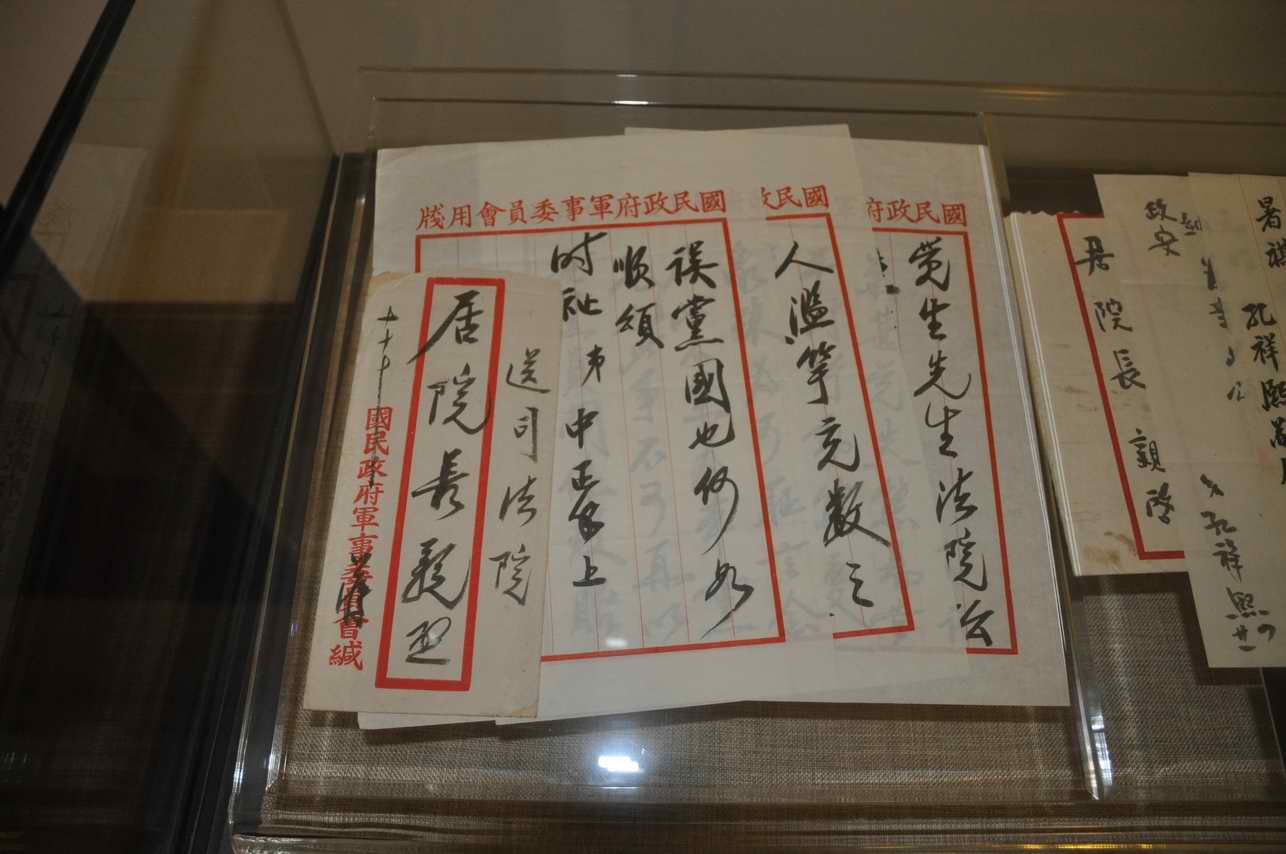 國民政府
覺生先生法院公
國民政
人濫竽充數之
國民政府軍事委員會用牋
誤黨國也何如
順頌
時祉 弟中正手上
送司法院
居院長親啟
國民政府軍事委員會緘
居院長 親啓
政安
暑祺 孔祥熙
孔祥熙